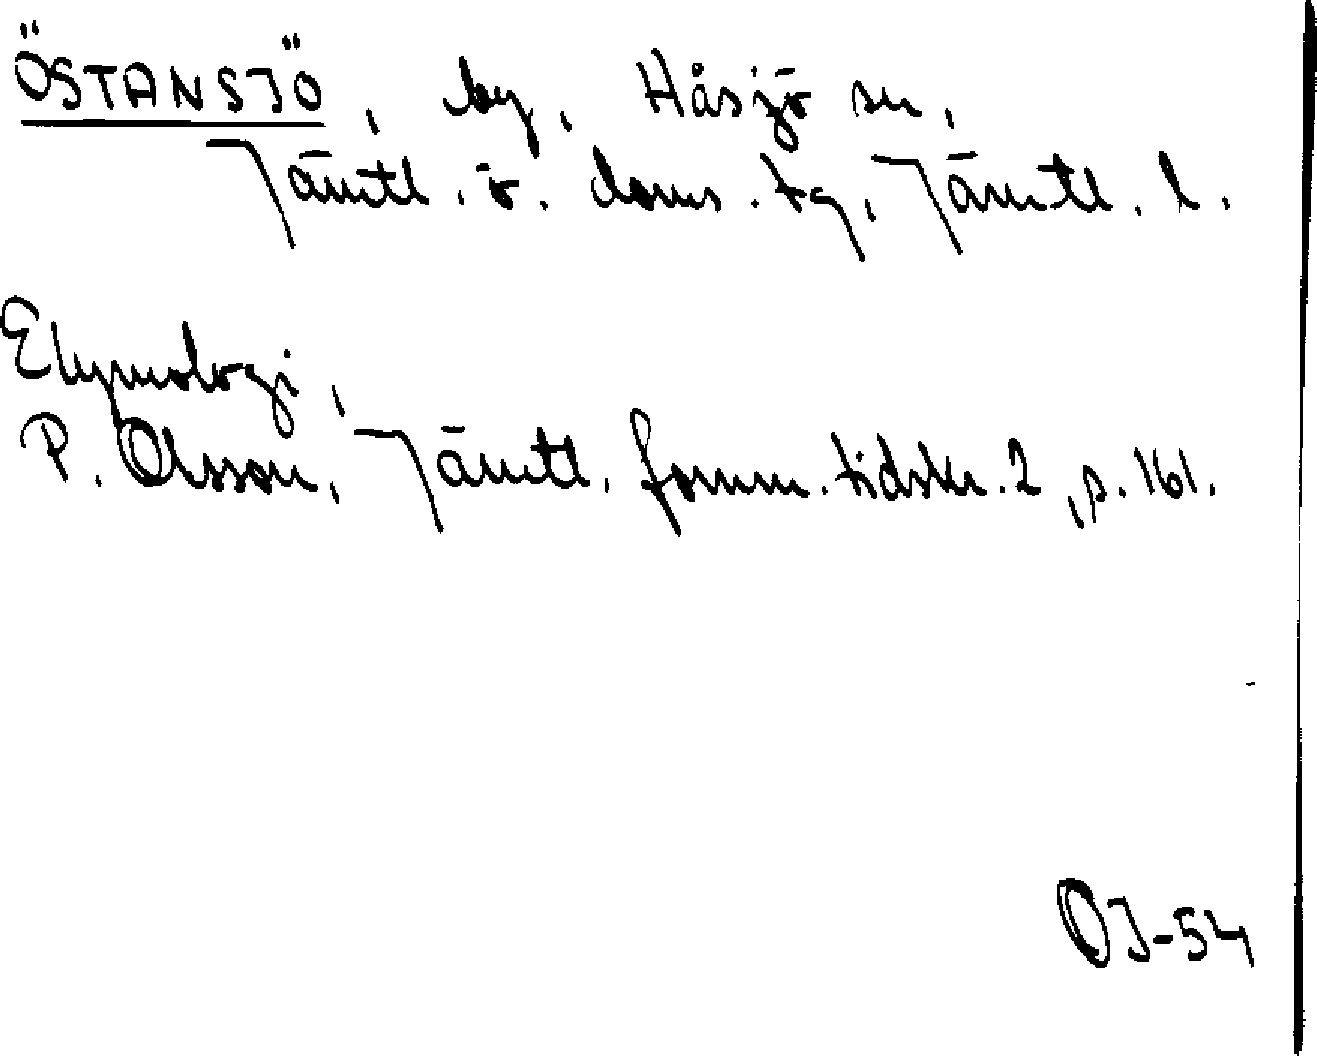 ÖSTANSJÖ, by, Håsjö sn,
Jämtl. ö. doms. tg, Jämtl. l.
Etymologi,
P. Olsson, Jämtl. fornm. tidskr. 2, s. 161.
OJ-54